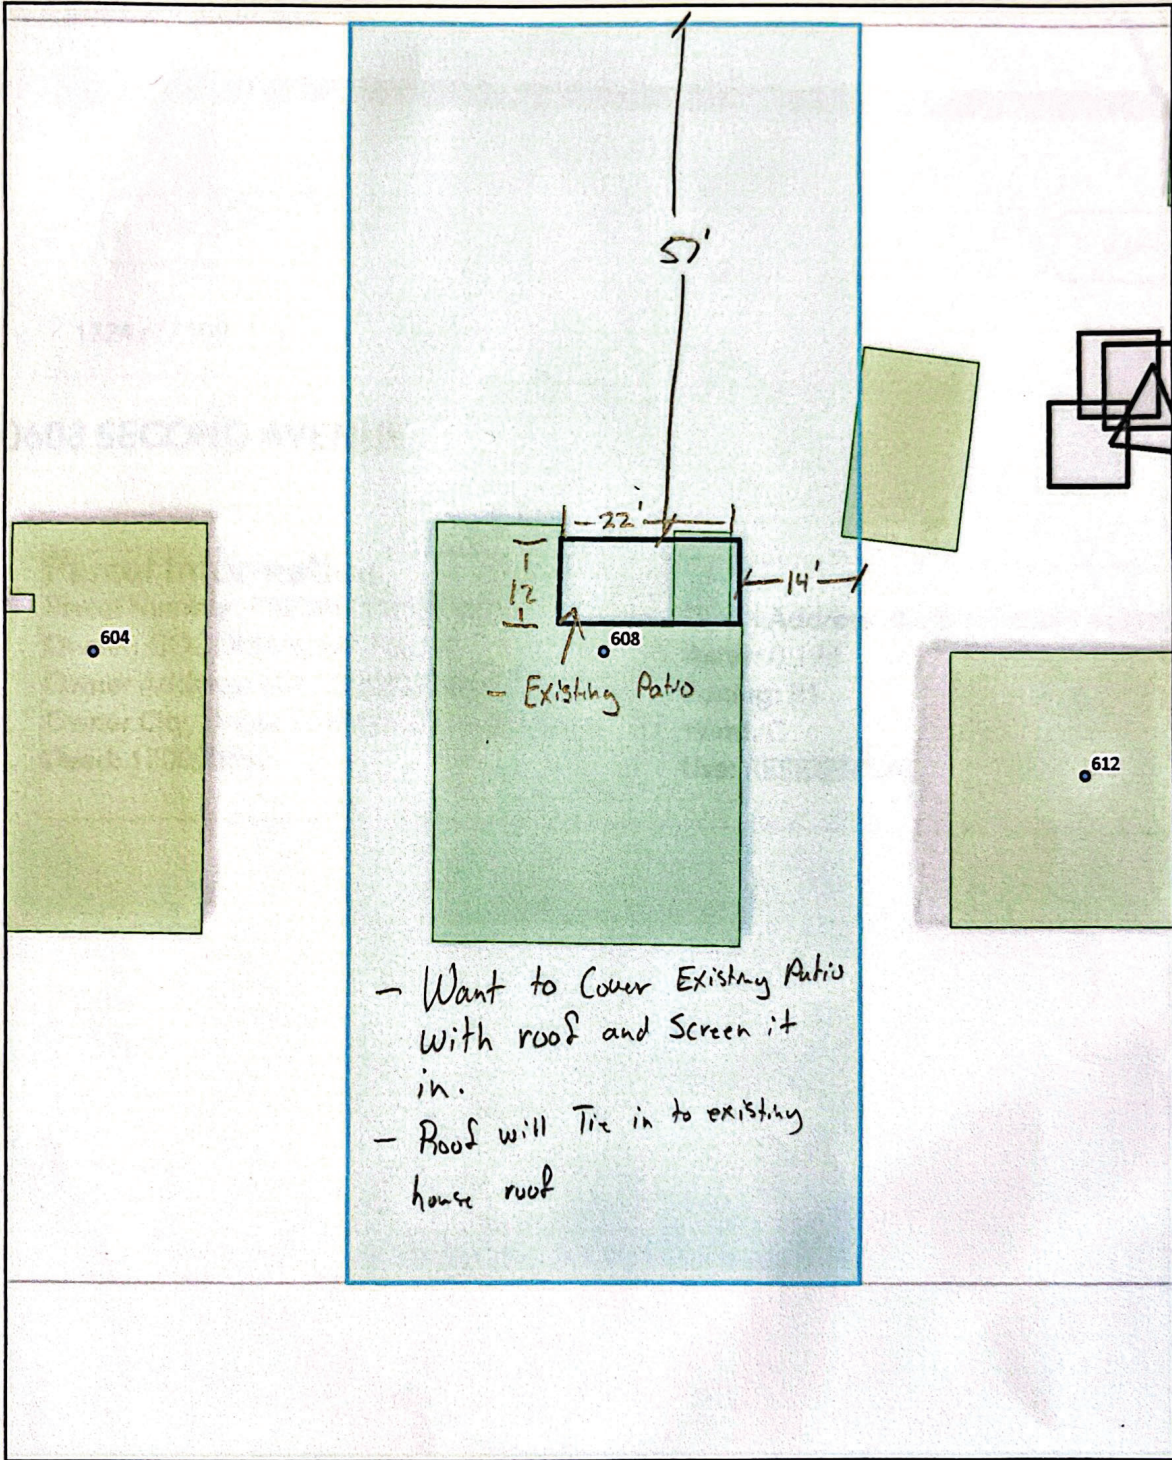 57'
22'
12
14'
604
608
- Existing Patio
612
- Want to Cover Existing Patio
with roof and Screen it
in.
- Roof will Tie in to existing
house roof
0608 SECOND AVENUE